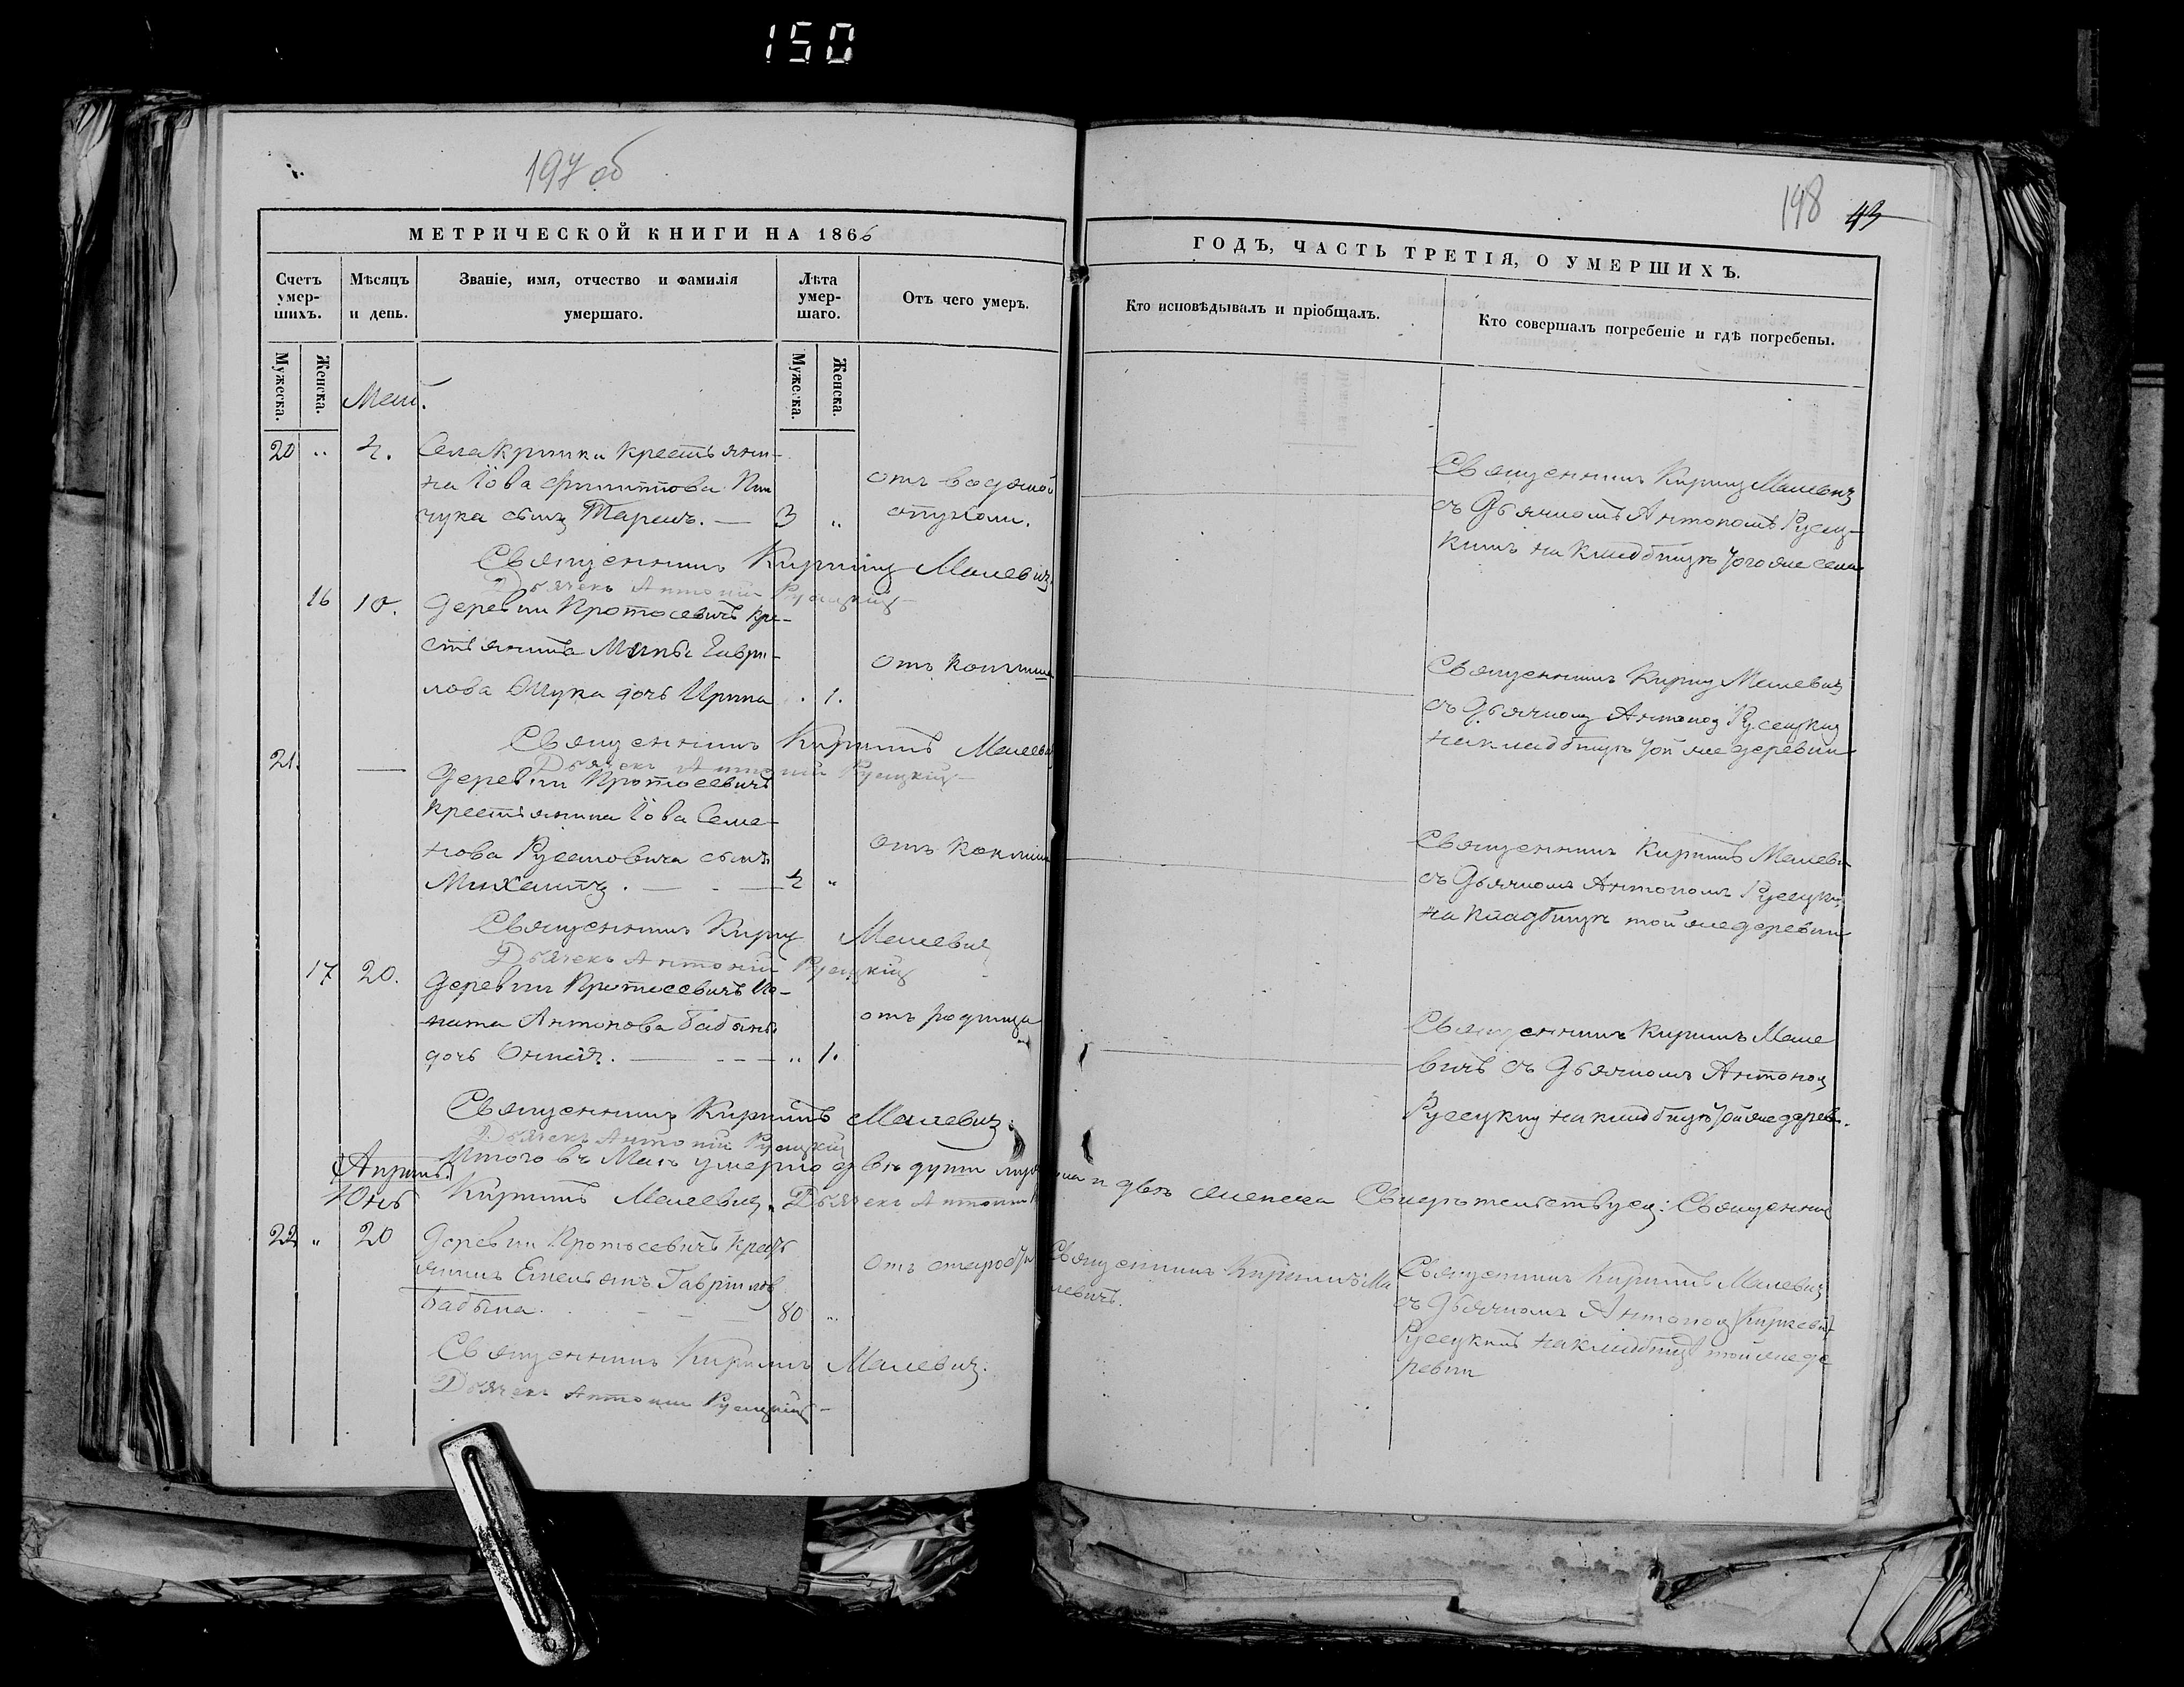 150
197 об
198 43
МЕТРИЧЕСКОЙ КНИГИ НА 1866
ГОДЪ, ЧАСТЬ ТРЕТІЯ, О УМЕРШИХЪ.
Счетъ умер-шихъ.
Мѣсяцъ и день.
Званіе, имя, отчество и фамилія умершаго.
Лѣта умер-шаго.
Отъ чего умеръ.
Кто исповѣдывалъ и пріобщалъ.
Кто совершалъ погребеніе и гдѣ погребены.
Мужеска.
Женска.
Мужеска.
Женска.
Маій.
20 " 4. Села крестьяни-
на Іова Филиппова
чука сынъ — 3 "
отъ водяной
опухоли.
Священникъ Кирилъ Малевичъ
съ Дьячкомъ Антономъ Русец-
кимъ на кладбищѣ тогоже села
Священникъ Кириллъ Малевичъ
Дьячекъ Антоній Русецкій
16 10. Деревни Протосевичъ кре-
стьянина Мины Гаври-
лова Жука дочь Ирина . 1.
отъ коклюша
Священникъ Кирилъ Малевичъ
съ Дьячкомъ Антономъ Русецкимъ
на кладбищѣ той же деревни
Священникъ Кириллъ Малевичъ
Дьячекъ Антоній Русецкій
21. — Деревни Протосевичъ
крестьянина Іова Семе-
нова сынъ
Михаилъ. — 4 "
отъ коклюша
Священникъ Кириллъ Малеви
съ Дьячкомъ Антономъ Русецки
на кладбищѣ той же деревни
Священникъ Кирилъ Малевичъ
Дьячекъ Антоній Русецкій
17 20. Деревни Протосевичъ Иг-
ната Антонова Бабына
дочь — " 1.
отъ родимца
Священникъ Кирилъ Мале
вичъ съ Дьячкомъ Антономъ
Русецким на кладбищѣ той же дерев.
Священникъ Кириллъ Малевичъ.
Дьячекъ Антоній Русецкій
Итого въ Маѣ умерло двѣ души муж на и двѣ женска Свидѣтельствуем: Священник
Апрѣль
Юнь
Кириллъ Малевичъ. Дьячекъ Антоній
22 " 20 Деревни Протосевичъ крест
янинъ Емельянъ Гавриловъ
Бабына. 80 "
отъ старости
Священникъ Кириллъ Ма
левичъ.
Священникъ Кириллъ Малевичъ
съ Дьячкомъ Антономъ
Русецкимъ на кладбищѣ той же де
ревни
Священникъ Кирилъ Малевичъ.
Дьячекъ Антоній Русецкій